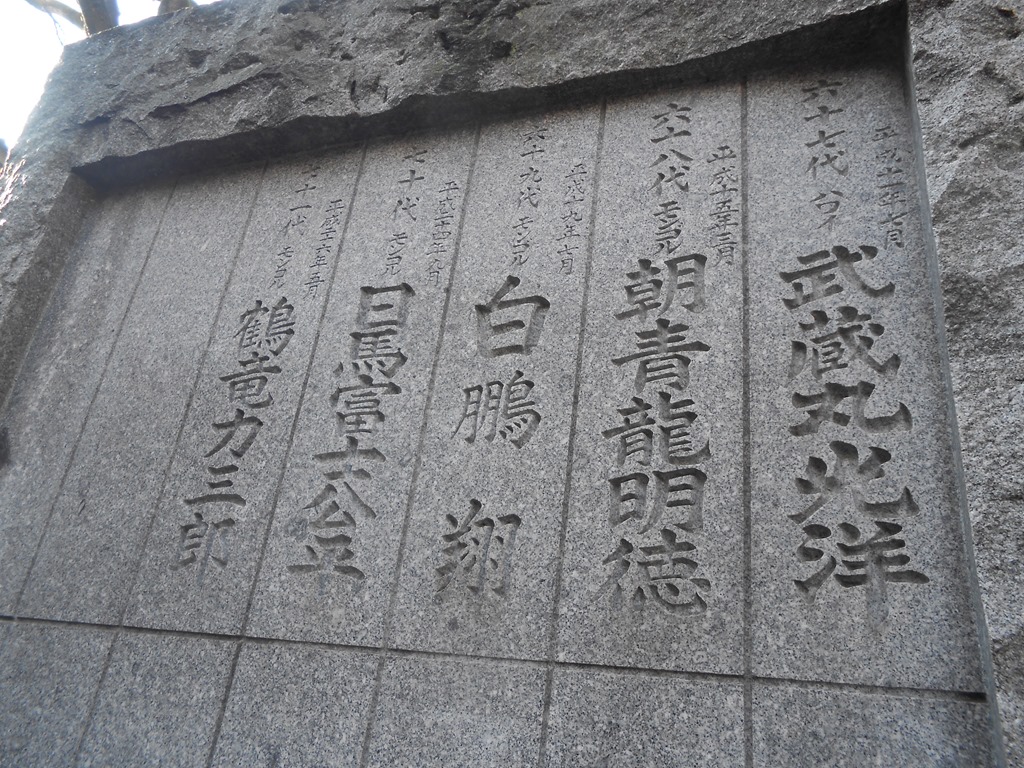 平成十一年七月
六十七代 ハワイ
武蔵丸光洋
平成十五年三月
六十八代 モンゴル
朝青龍明徳
平成十九年七月
六十九代 モンゴル
白鵬翔
平成二十四年十一月
七十代 モンゴル
日馬富士公平
平成二十六年五月
七十一代 モンゴル
鶴竜力三郎